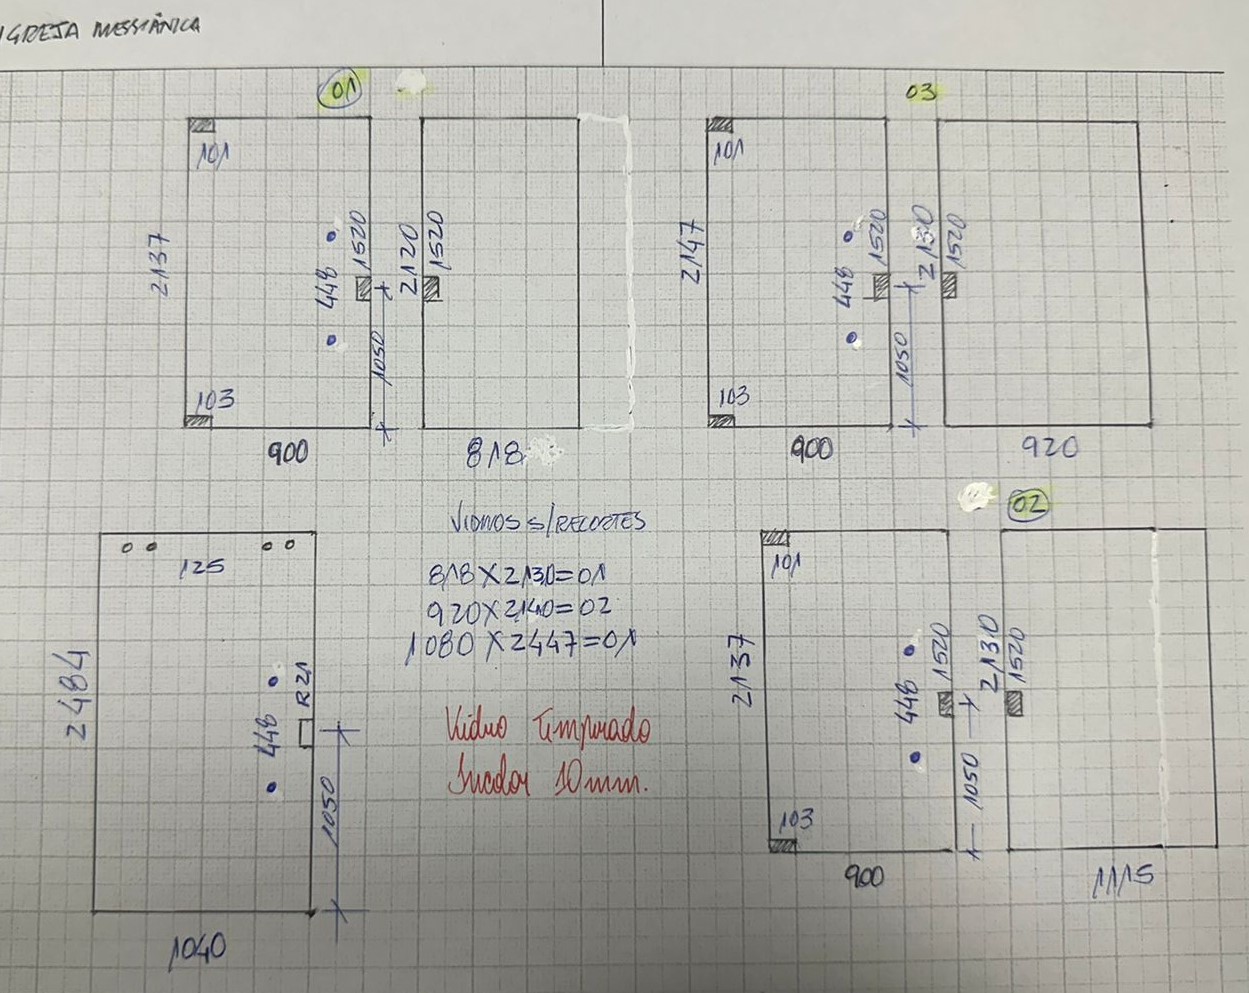 IGREJA MESSIÂNICA
01
101
2137
448
1520
1050
103
900
2120
1520
818
03
101
2147
448
1520
1050
103
900
2130
1520
920
125
2484
448
R21
1050
1040
VIDROS S/RECORTES
818X2130=01
920X2140=02
1080X2447=01
Vidro Temperado
Incolor 10mm.
02
101
2137
448
1520
1050
103
900
2130
1520
1115